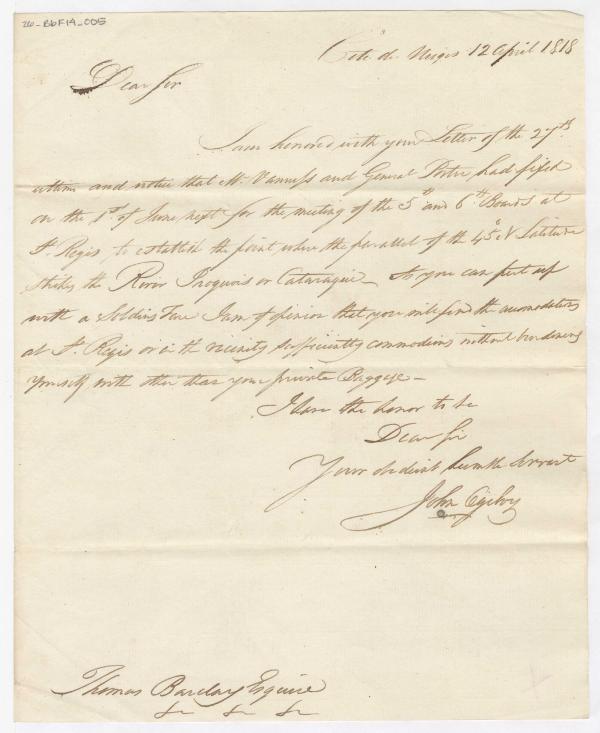 26-B6F14-005
Cote de Neiges 12 April 1818
Dear Sir
I am honored with your Letter of the 27th
ultimo and notice that Mr. Vanness and General Porter, had fixed
on the 1st of June next for the meeting of the 5th and 6th Boards at
St. Regis, to establish the point where the parallel of the 45° N Latitude
strikes the River Iroquois or Cataraquie_ As you can put up
with a Soldiers Fare I am of opinion that you will find the accomodations
at St. Regis or in the vicinity sufficiently commodious without burdening
yourself with other than your private Baggage_
I have the honor to be
Dear Sir
Your obedient humble Servant
John Ogilvy
Thomas Barclay Esquire
&c &c &c